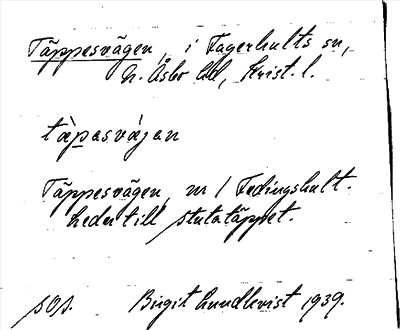 Täppesvägen, i Fagerhults sn,
N. Åsbo hd, Krist. l.
tàpasvájan
Täppesvägen, nr 1 Fedingshult.
Leder till stutatäppet.
sOs. Birgit Lundkvist 1939.